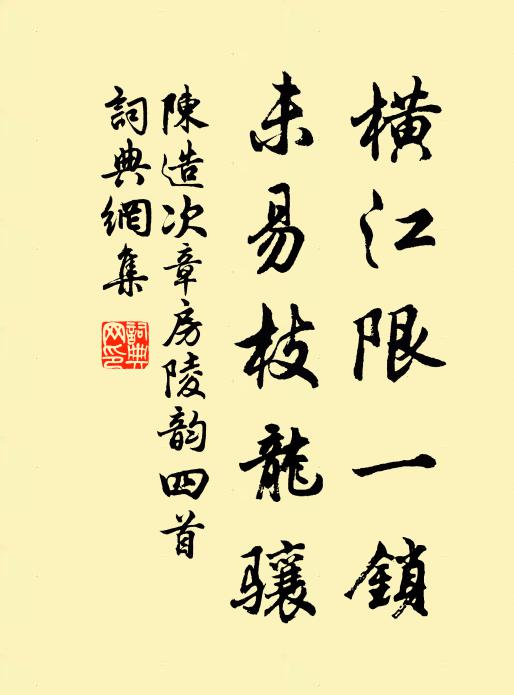 橫江限一鎖
未易枝龍驤
陳造次章房陵韵四首
詞典網集
詞典網印